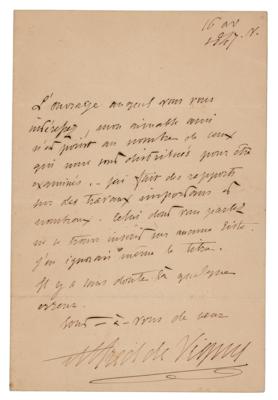 16 av
1847. V.
L'ouvrage auquel vous vous
intéressez, mon aimable ami
n'est point au nombre de ceux
qui nous sont distribués pour être
examinés.. j'ai fait des rapports
sur des travaux importans et
nombreux. Celui dont vous parlez
ne se trouve inscrit sur aucune liste.
j'en ignorais même le titre.
Il y a sans doute là quelque
erreur.
tout – à – vous de cœur
Alfred de Vigny